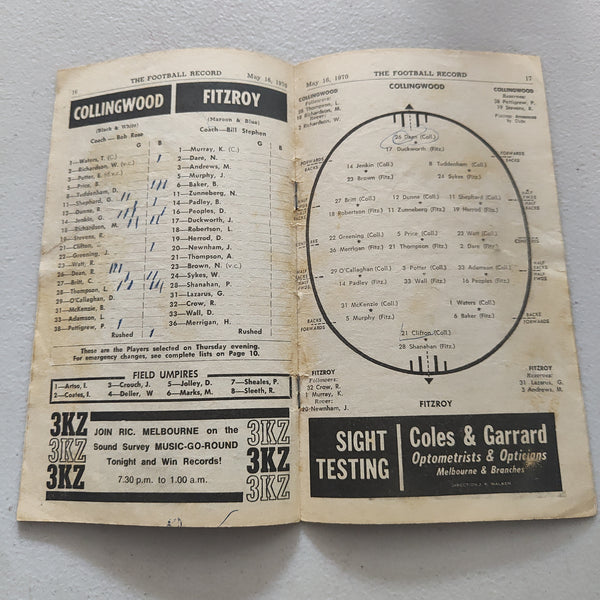 16 THE FOOTBALL RECORD May 16, 1970
COLLINGWOOD FITZROY
(Black & White)
Coach—Bob Rose
G B
1—Waters, T. (C.)
2—Richardson, W. (v.c.)
3—Potter, B. (d.v.c.)
5—Price, B.
8—Tuddenham, D.
11—Shepherd, G.
12—Dunne, R.
14—Jenkin, G.
18—Richardson, M.
19—Stevens, R.
21—Clifton,
22—Greening, J.
23—Watt, R.
26—Dean, R.
27—Britt, C.
28—Thompson, L.
29—O'Callaghan, D.
31—McKenzie, B.
33—Adamson, L.
38—Pettigrew, P.
Rushed
(Maroon & Blue)
Coach—Bill Stephen
G B
1—Murray, K. (C.)
2—Dare, N.
3—Andrews, M.
5—Murphy, J.
6—Baker, B.
11—Zunneberg, N.
14—Padley, B.
16—Peoples, D.
17—Duckworth, J.
18—Robertson, L.
19—Herrod, D.
20—Newnham, J.
21—Thompson, A.
23—Brown, N. (v.c.)
24—Sykes, W.
28—Shanahan, P.
31—Lazarus, G.
32—Crow, R.
33—Wall, D.
36—Merrigan, H.
Rushed
These are the Players selected on Thursday evening.
For emergency changes, see complete lists on Page 10.
FIELD UMPIRES
1—Artso, I. 3—Crouch, J. 5—Jolley, D. 7—Sheales, P.
2—Coates, I. 4—Deller, W 6—Marks, M. 8—Sleeth, R.
3KZ
3KZ
3KZ
JOIN RIC. MELBOURNE on the
Sound Survey MUSIC-GO-ROUND
Tonight and Win Records!
7.30 p.m. to 1.00 a.m.
3KZ
3KZ
3KZ
3KZ
May 16, 1970 THE FOOTBALL RECORD 17
COLLINGWOOD
Followers:
Thompson, L.
Richardson, M.
Rover:
Richardson, W.
COLLINGWOOD
Reserves:
38 Pettigrew, P.
19 Stevens, R.
26 Dean (Coll.)
17 Duckworth (Fitz.)
FORWARDS
BACKS
14 Jenkin (Coll.) 8 Tuddenham (Coll.)
23 Brown (Fitz.) 24 Sykes (Fitz.)
FORWARDS
BACKS
HALF
FWDS
HALF
BACKS
27 Britt (Coll.) 12 Dunne (Coll.) 11 Shepherd (Coll.)
18 Robertson (Fitz.) 11 Zunneberg (Fitz.) 19 Herrod (Fitz.)
HALF
FWDS
HALF
BACKS
22 Greening (Coll.) 5 Price (Coll.) 23 Watt (Coll.)
36 Merrigan (Fitz.) 21 Thompson (Fitz.) 2 Dare (Fitz.)
CENTRES
29 O'Callaghan (Coll.) 3 Potter (Coll.) 33 Adamson (Coll.)
14 Padley (Fitz.) 33 Wall (Fitz.) 16 Peoples (Fitz.)
HALF
BACKS
HALF
FWDS
31 McKenzie (Coll.) 1 Waters (Coll.)
5 Murphy (Fitz.) 6 Baker (Fitz.)
BACKS
FORWARDS
21 Clifton (Coll.)
28 Shanahan (Fitz.)
FITZROY
Followers:
32 Crow, R.
1 Murray, K.
Rover:
20 Newnham, J.
FITZROY
FITZROY
Reserves:
31 Lazarus, G.
3 Andrews, M.
SIGHT
TESTING
Coles & Garrard
Optometrists & Opticians
Melbourne & Branches